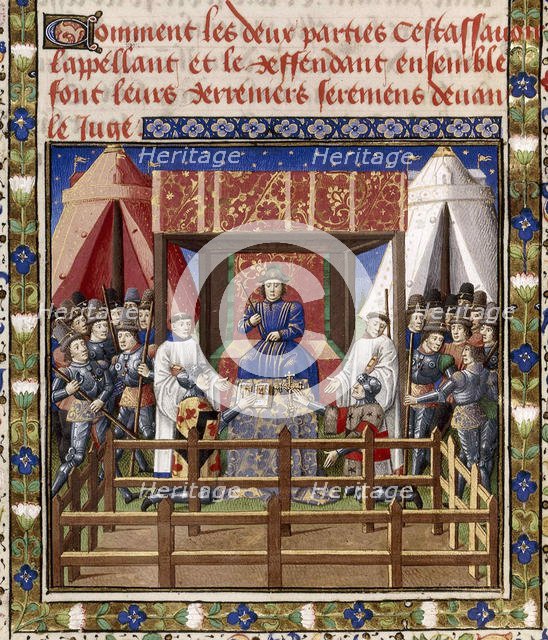 Comment les deux parties Cestassavoir
lappellant et le deffendant ensemble
font leurs derreniers seremens devan
le Juge
Heritage Heritage
C
Heritage Heritage
Heritage Heritage